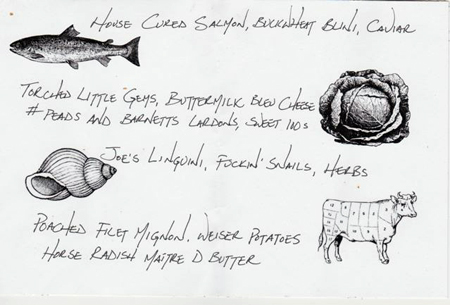 House Cured Salmon, Buckwheat Blini, Caviar
Torched Little Gems, Buttermilk Bleu Cheese
# Peads and Barnetts Lardons, Sweet 100s
Joe's Linguini, Fuckin' Snails, Herbs
Poached Filet Mignon. Weiser Potatoes
Horse Radish Maître D Butter